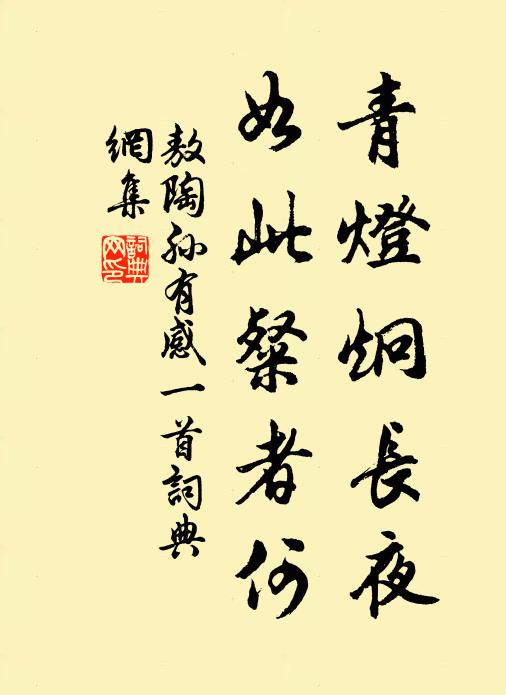 青燈炯長夜
如此粲者何
敖陶孫有感一首詞典
網集
詞典
网印